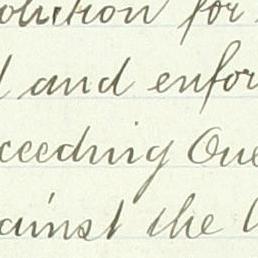 olution for
d and enfor
ceeding One
ainst the